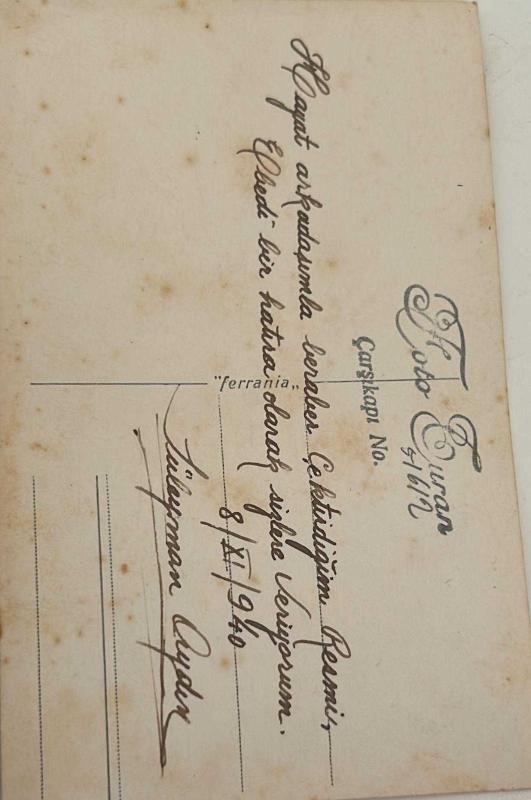 Foto Turan
Çarşıkapı No.
Hayat arkadaşımla beraber Çektirdiğim Resmi,
Ebedi bir hatıra olarak sizlere Veriyorum.
8/XI/940
Süleyman Aydın
"ferrania"